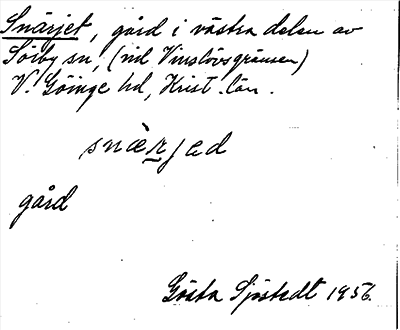 Snärjet, gård i västra delen av
Sörby sn, (vid Vinslövsgränsen)
V. Göinge hd, Krist. län.
snæ̀rjəd
gård
Gösta Sjöstedt 1956.